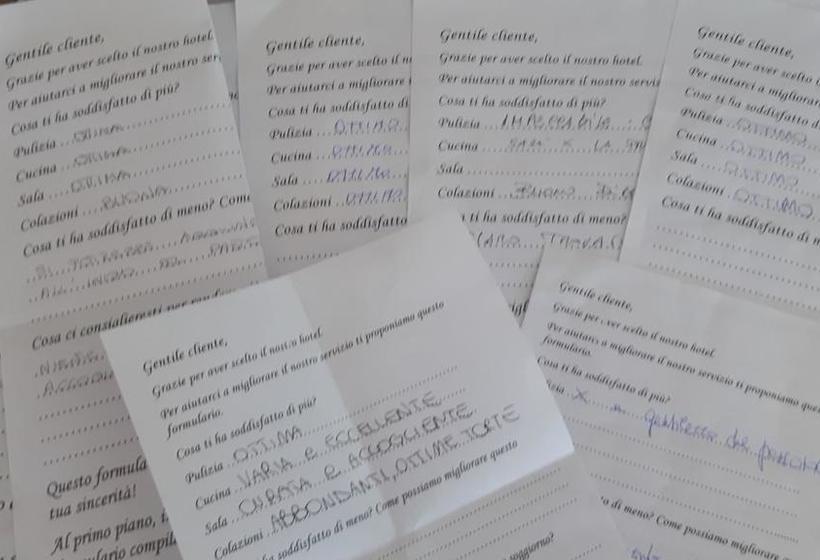 Gentile cliente,
Grazie per aver scelto il nostro hotel.
Per aiutarci a migliorare il nostro ser
Cosa ti ha soddisfatto di più?
Pulizia ... OTTIMA
Cucina ... OTTIMA
Sala .... OTTIMA
Colazioni .... BUONA
Cosa ti ha soddisfatto di meno? Come
Cosa ci consiglieresti per
Questo formula
tua sincerità!
Al primo piano, i
ulario compil
Gentile cliente,
Grazie per aver scelto il n
Per aiutarci a migliorare i
Cosa ti ha soddisfatto di
Pulizia ... OTTIMO
Cucina ... OTTIMO
Sala .... OTTIMO
Colazioni .... OTTIMO
Cosa ti ha soddisfatto
Gentile cliente,
Grazie per aver scelto il nostro hotel.
Per aiutarci a migliorare il nostro servi
Cosa ti ha soddisfatto di più?
Pulizia
Cucina
Sala
Colazioni
ti ha soddisfatto di meno?
Gentile cliente,
Grazie per aver scelto i
Per aiutarci a migliorar
Cosa ti ha soddisfatto d
Pulizia ... OTTIMO
Cucina ... OTTIMO
Sala .... OTTIMO
Colazioni ... OTTIMO
Cosa ti ha soddisfatto di m
Gentile cliente,
Grazie per aver scelto il nostro hotel.
Per aiutarci a migliorare il nostro servizio ti proponiamo questo
formulario.
Cosa ti ha soddisfatto di più?
Pulizia ... OTTIMA
Cucina ... VARIA E ECCELLENTE
Sala .... CURATA E ACCOGLIENTE
Colazioni ... ABBONDANTI, OTTIME TORTE
a soddisfatto di meno? Come possiamo migliorare questo
soggiorno?
Gentile cliente,
Grazie per aver scelto il nostro hotel.
Per aiutarci a migliorare il nostro servizio ti proponiamo que
formulario.
Cosa ti ha soddisfatto di più?
izia X
o di meno? Come possiamo migliorare